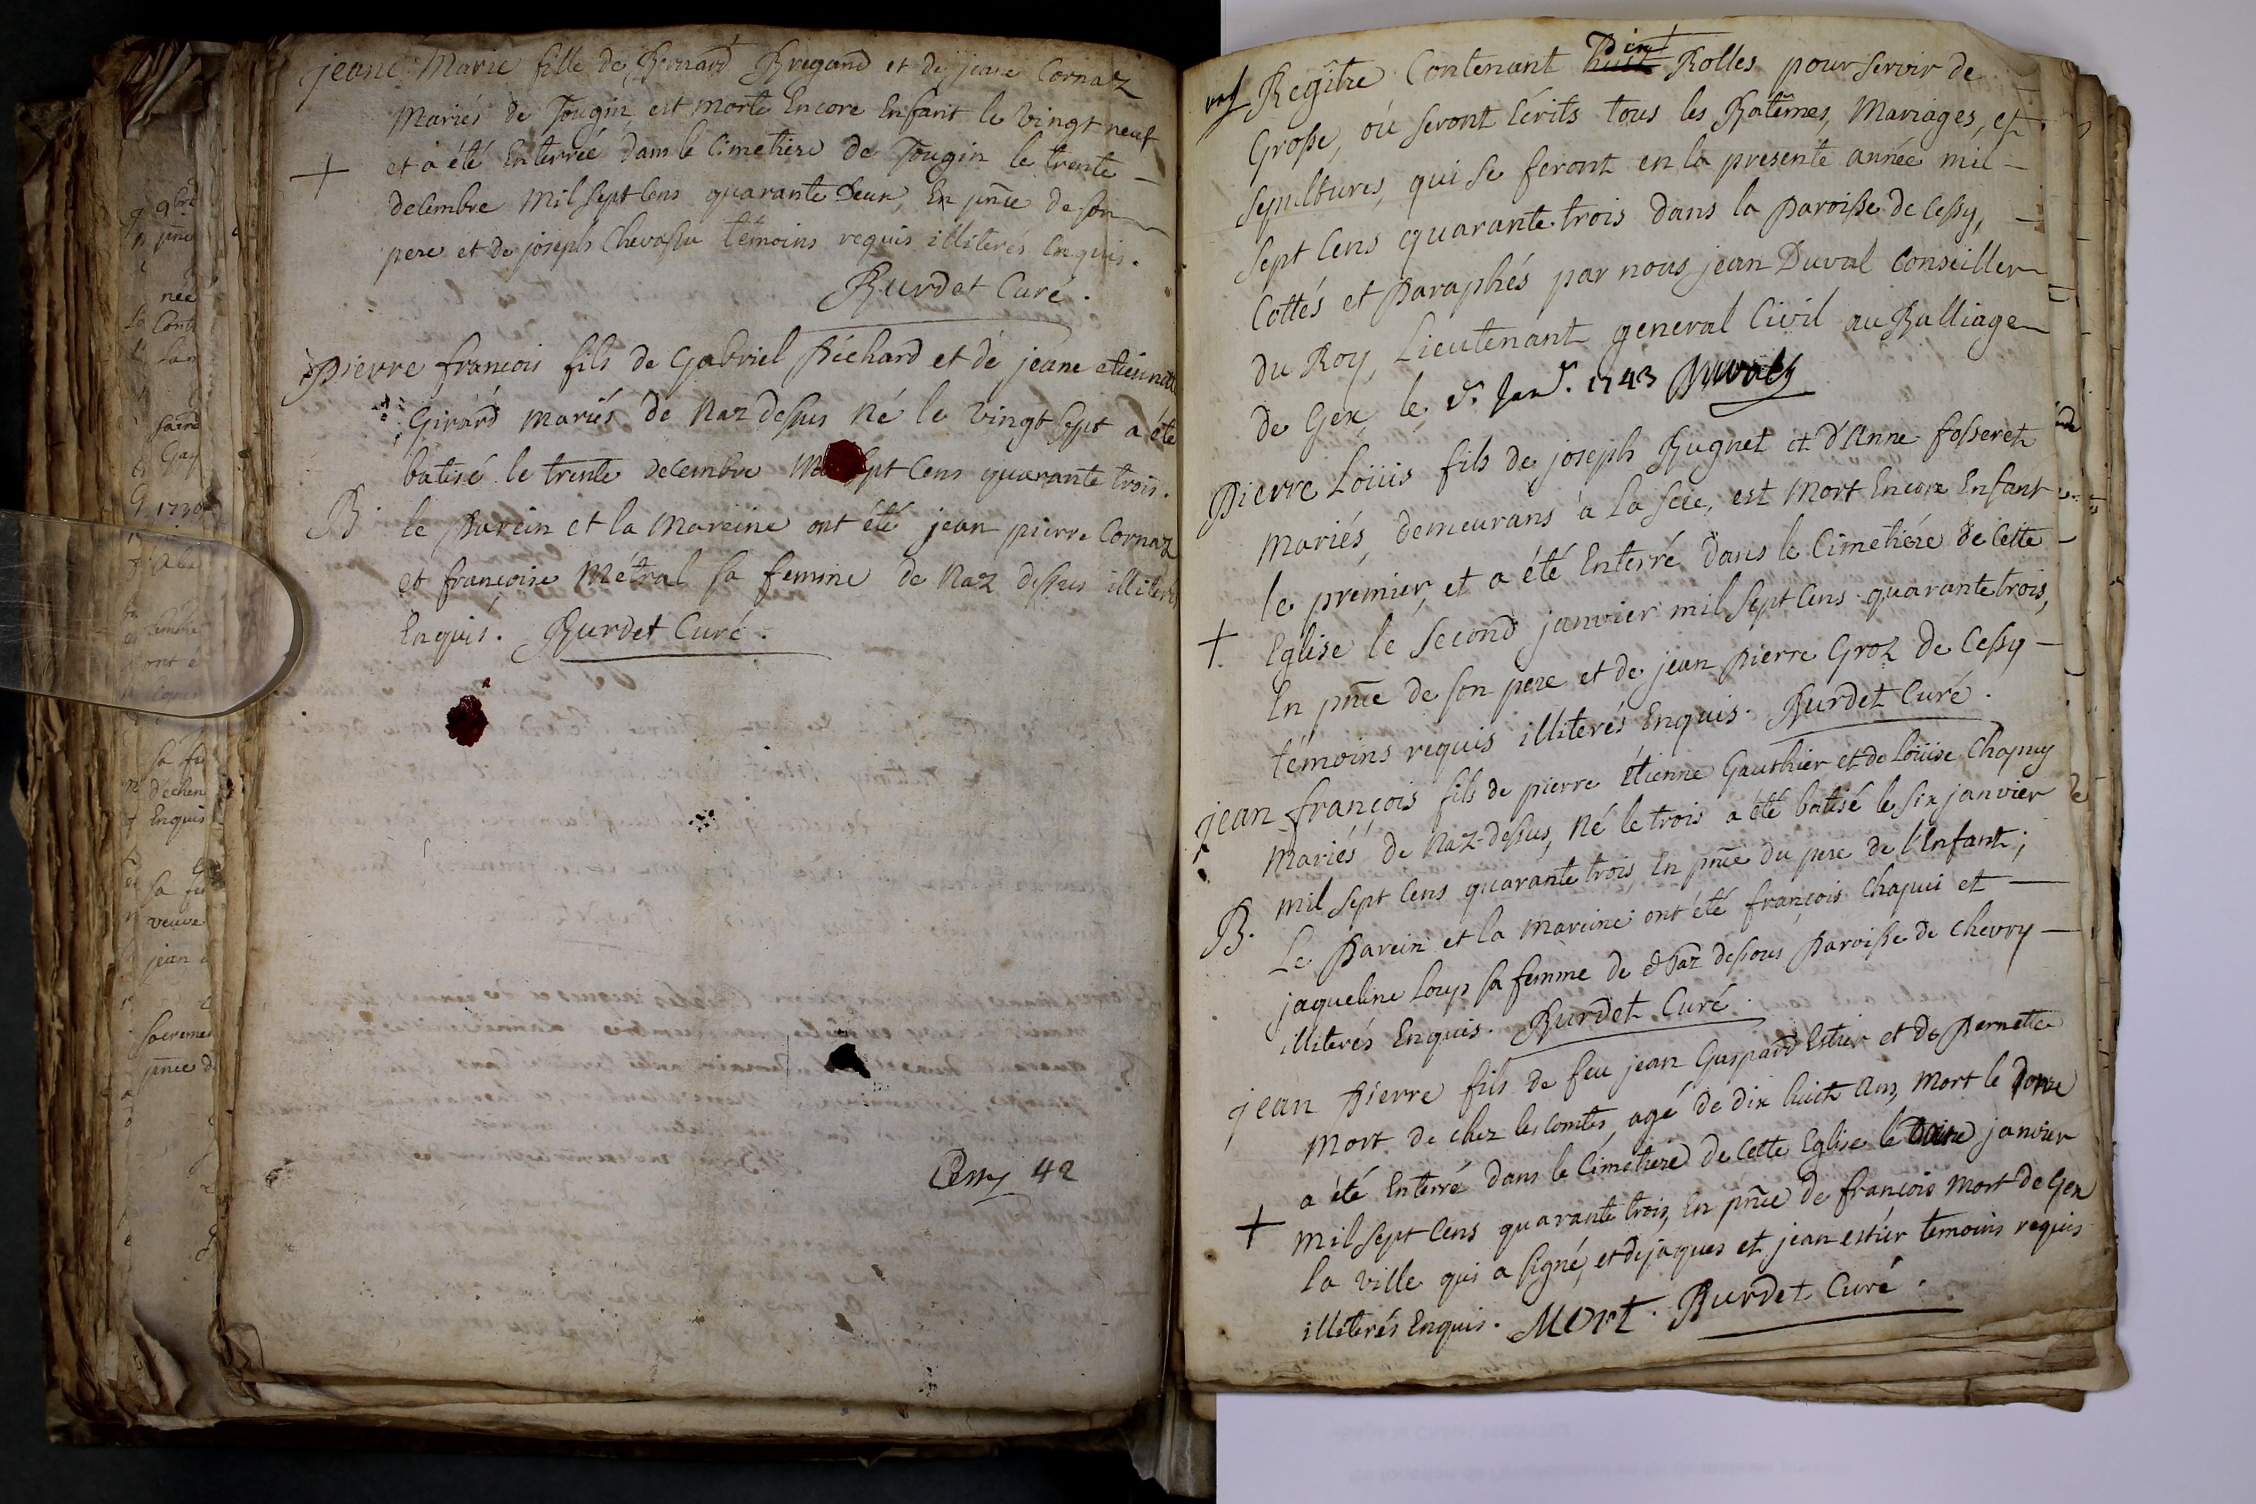 jeane Marie fille de Bernard Bregand et de jeane Cornaz
mariés de Tougin, est morte Encore Enfant le vingt neuf
+ et a été Enterrée dans le Cimetiere de Tougin le trente
decembre mil sept Cens quarante Deux, En pñce de son
pere et de joseph Chevassu témoins requis illiterés Enquis.
Burdet Curé.
Pierre francois fils de Gabriel Péchard et de jeane etiennette
Girard mariés de Naz dessus Né le vingt sept a été
batisé le trente decembre sept Cens quarante trois.
B. le Parein et la Mareine ont été jean pierre Cornaz
et francoise Métral sa femme de Naz dessus illiterés
Enquis. Burdet Curé.
Cessy 42
Regître Contenant huit dix Rolles pour servir de
Grosse, où seront Ecrits tous les Batêmes, Mariages, et
sepultures, qui se feront en la presente année mil
sept Cens quarante trois dans la Paroisse de Cessy,
Cottés et Paraphés par nous jean Duval Conseiller
du Roy, Lieutenant general Civil au Balliage
de Gex, le Janr. 1743 Duval
Pierre Loüis fils de joseph Bugnet et d'Anne fosseret
mariés, demeurans à la scie, est Mort Encore Enfant
le premier, et a été Enterré dans le Cimetiére de Cette
+ Eglise le second janvier mil sept Cens quarante trois,
En pñce de son pere et de jean pierre Groz de Cessy
témoins requis illiterés Enquis. Burdet Curé.
jean françois fils de pierre étienne Gauthier et de Loüise Chapuy
Mariés de Naz-dessus, Né le trois a été batisé le six janvier
mil sept Cens quarante trois, En pñce du pere de l'Enfant;
B. Le Parein et la Mareine ont été françois Chapui et
jaqueline Loup sa femme de Naz dessous Paroisse de Chevry
illiterés Enquis. Burdet Curé.
jean Pierre fils de feu jean Guspard Estier et de Pernette
Mort de chez les Comtes, agé de dix huict Ans, mort le Donze
a été Enterré dans le Cimetiere de Cette Eglise le janvier
+ mil sept Cens quarante trois, En pñce de françois Mort de Gex
la ville qui a signé, et de jaques et jean estier temoins requis
illiterés Enquis. MOrt. Burdet Curé.